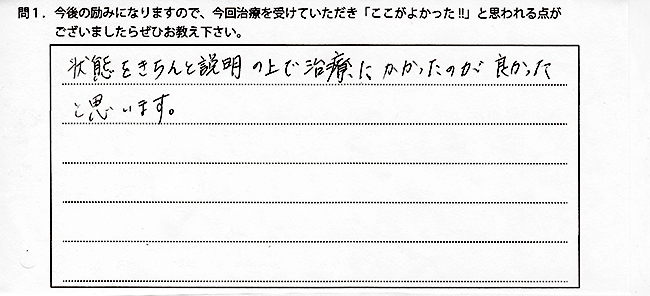 問1．今後の励みになりますので、今回治療を受けていただき「ここがよかった!!」と思われる点が
ございましたらぜひお教え下さい。
状態をきちんと説明の上で治療にかかったのが良かった
と思います。